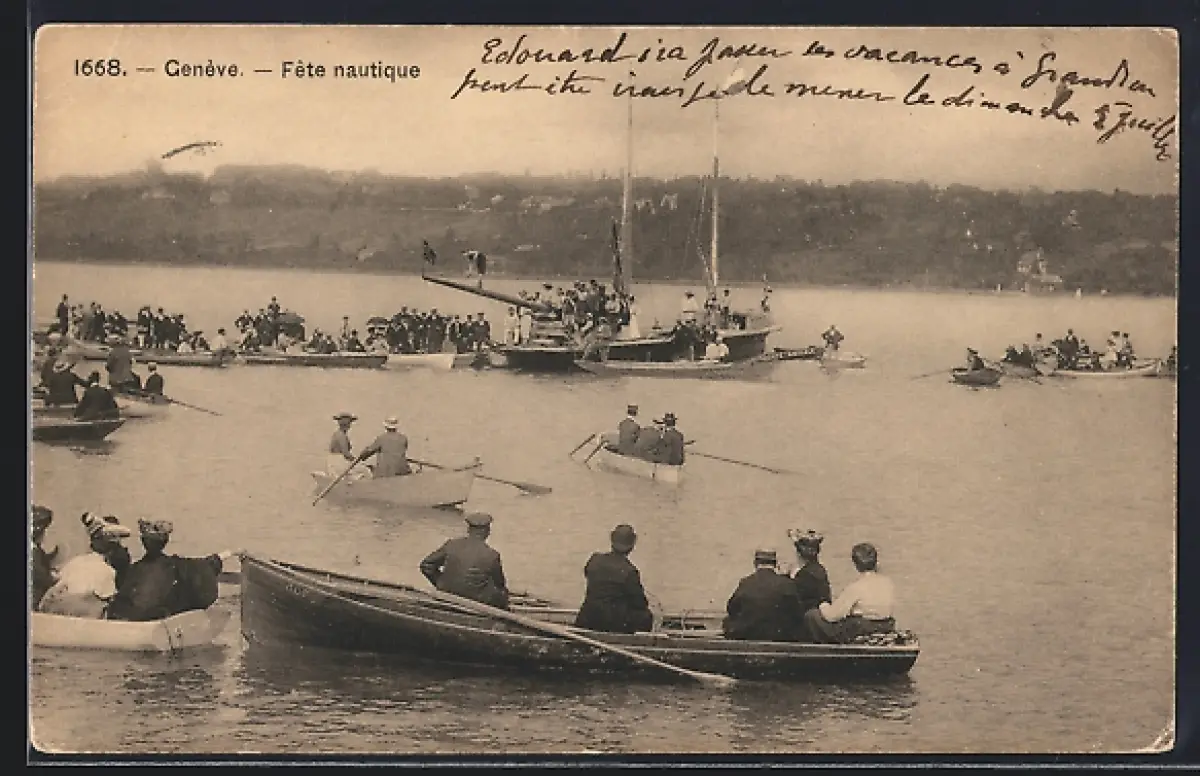 1668. — Genève. — Fête nautique
Edouard ira passer les vacances à Grandson
peut-être irais-je le mener le dimanche